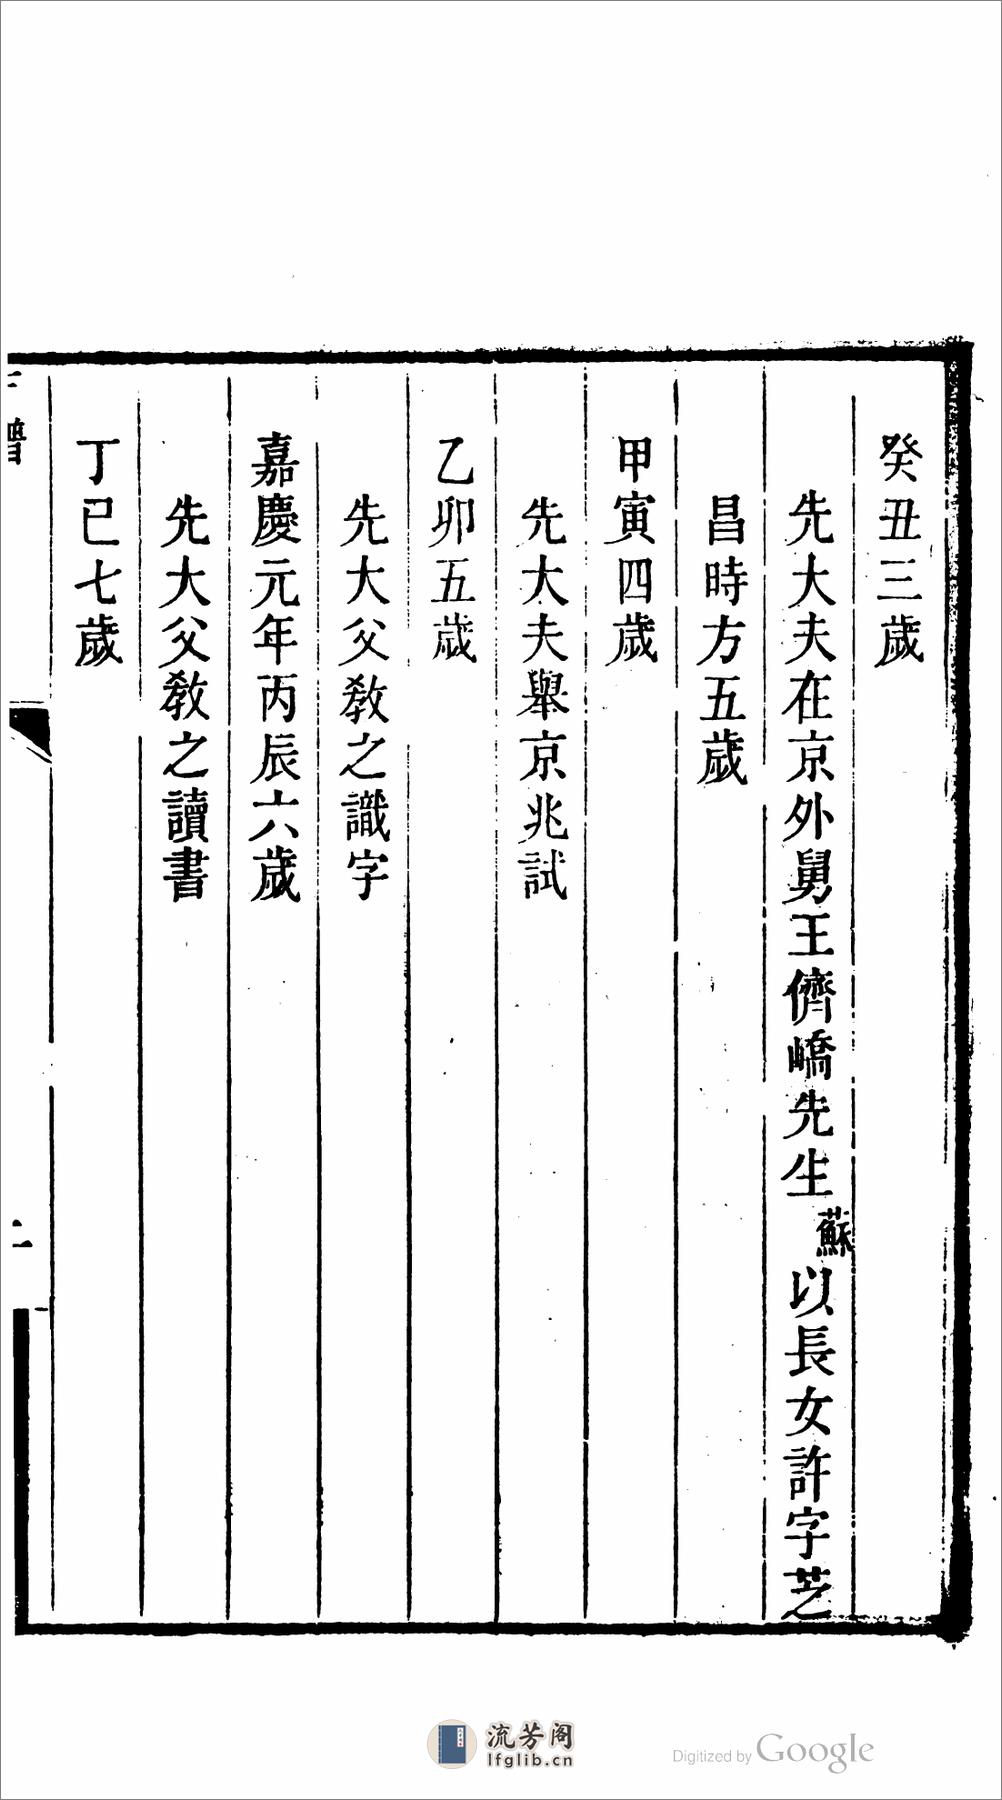 癸丑三歲
先大夫在京外舅王儕嶠先生蘇以長女許字芝
昌時方五歲
甲寅四歲
先大夫舉京兆試
乙卯五歲
先大父教之識字
嘉慶元年丙辰六歲
先大父教之讀書
丁巳七歲
譜
二
流芳阁
lfglib.cn
Digitized by Google